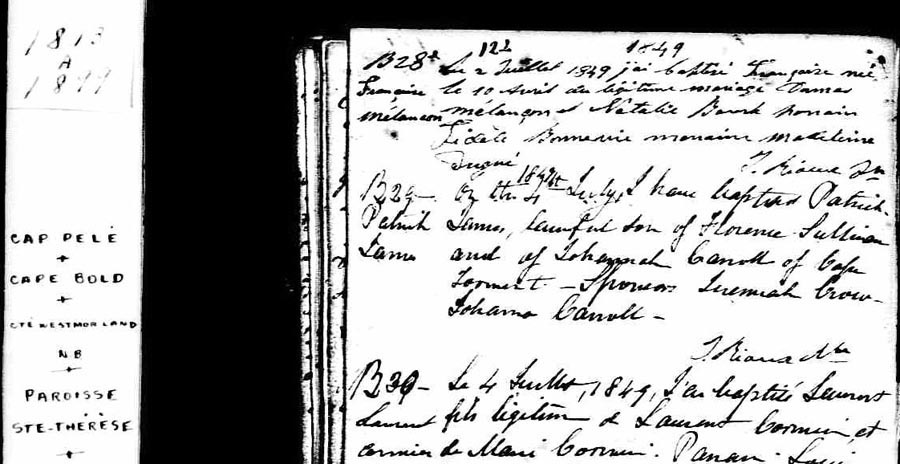 1813
A
1899
CAP PELÉ
+
CAPE BOLD
+
CTÉ WESTMORLAND
NB
+
PAROISSE
STE-THÉRÈSE
+
122 1849
B28e Le 2 Juillet 1849 j'ai baptisé Françoise née
Françoise le 10 Avril du légitime mariage Damas
Mélançon mélançon et Natalie Bourk parrain
Fidèle Bonnevie marraine madeleine
Dugué
B29- On the 4th July, 1849 I have baptised Patrick
Patrick James, lawful son of Florence Sullivan
James and of Johannah Carroll of Cape
Torment - Sponsors Jeremiah Crow-
Johanna Carroll -
B30- Le 4 Juillet, 1849, J'ai baptisé Laurent
Laurent fils légitime de Laurent Cormier et
cormier de Marie Cormier. Parrain